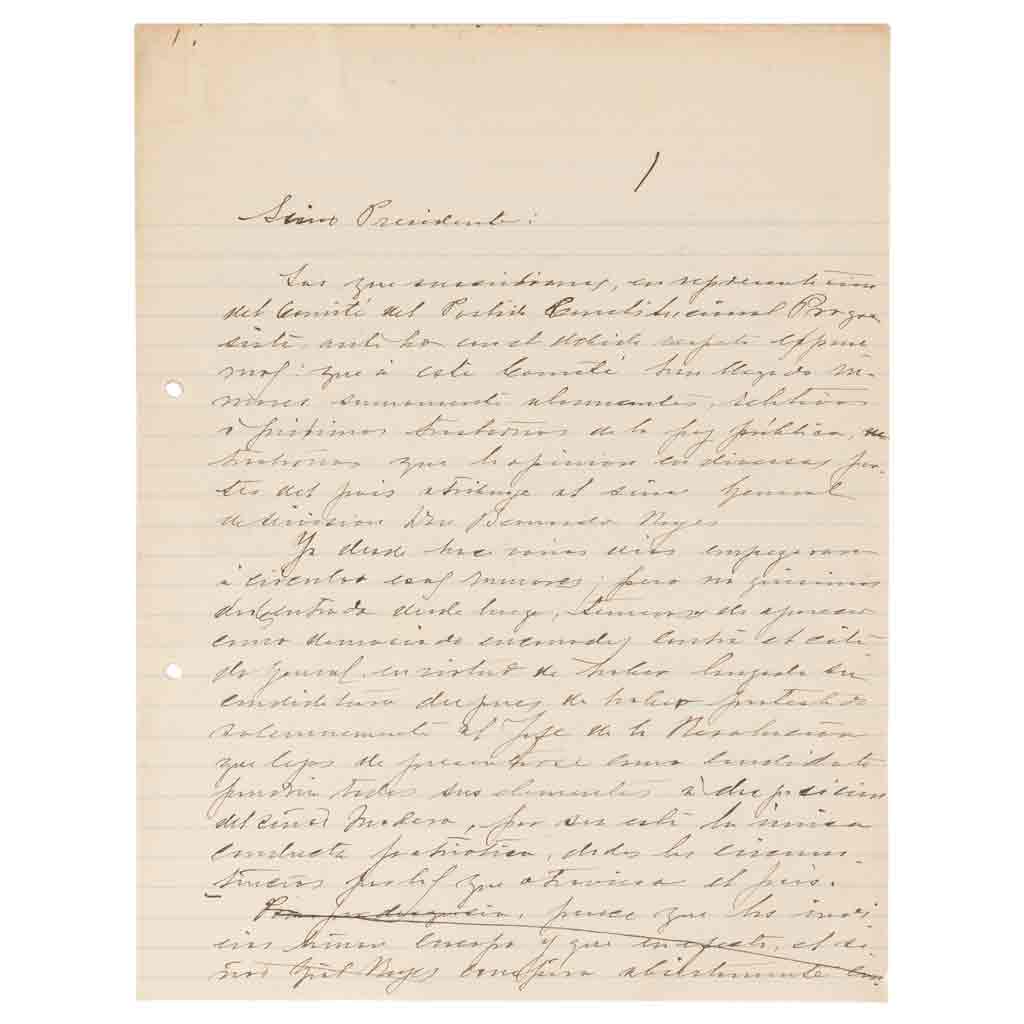 1.
1
Señor Presidente:
Los que suscribimos, en representación
del Comité del Partido Constitucional Progre-
sista, ante Ud. con el debido respeto expone-
mos: que á este Comité han llegado ru-
mores sumamente alarmantes, relativos
á próximos trastornos de la paz pública,
trastornos que la opinion en diversas par-
tes del pais atribuye al señor General
de division Don Bernardo Reyes
Ya desde hace varios dias empezaron
á circular esos rumores; pero no quisimos
darles entrada desde luego, temerosos de aparecer
como demasiado enconados contra el cita-
do General, en virtud de haber lanzado su
candidatura despues de haber protestado
solemnemente al Jefe de la Revolución
que lejos de presentarse como candidato
pondria todos sus elementos á disposicion
del señor Madero, por ser esta la única
conducta patriótica, dadas las circuns-
tancias porque atraviesa el pais.
Por desgracia, parece que los indi
cios toman cuerpo y que en efecto, el se-
ñor Gral Reyes conspira abiertamente con-